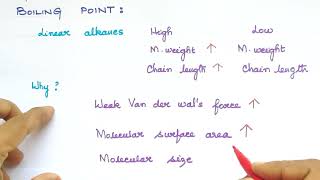 BOILING POINT:
Linear alkanes High Low
M. weight ↑ M. weight
Chain length ↑ Chain length
Why?
Weak Van der wal's force ↑
Molecular surface area ↑
Molecular size